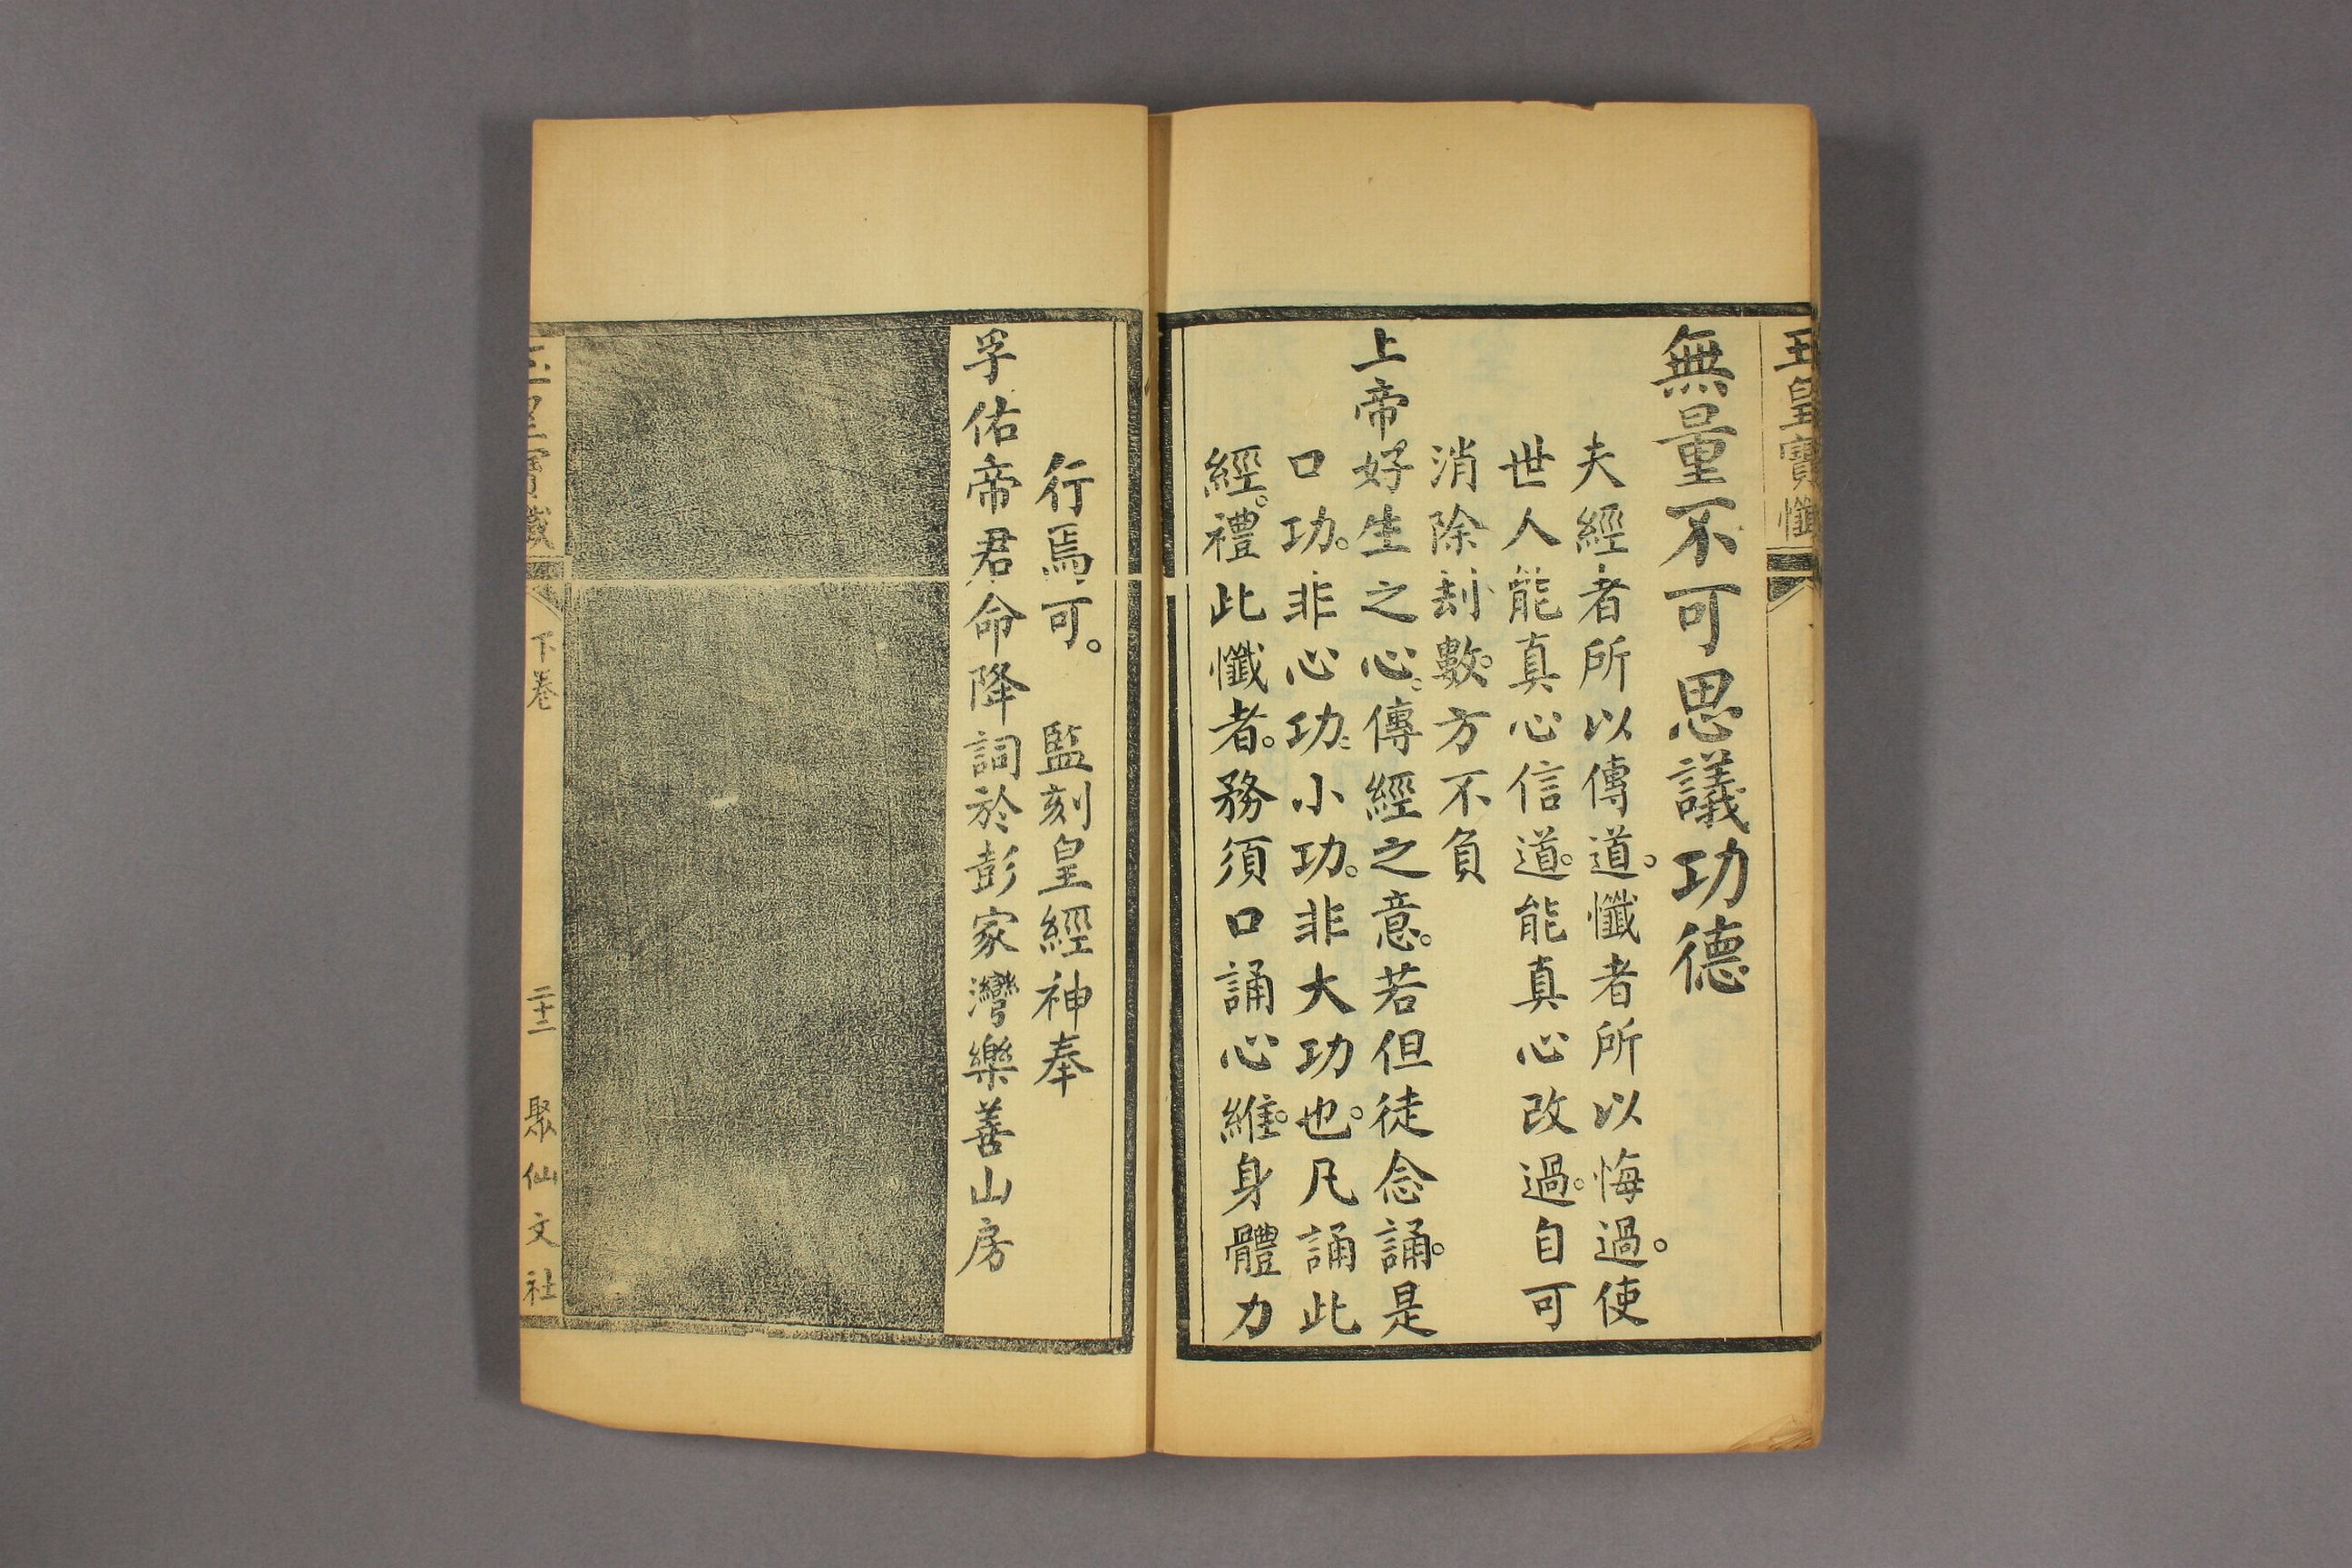 玉皇寶懺
無量不可思議功德
夫經者所以傳道。懺者所以悔過。使
世人能真心信道。能真心改過。自可
消除刦數。方不負
上帝好生之心。傳經之意。若但徒念誦。是
口功。非心功。小功。非大功也。凡誦此
經。禮此懺者。務須口誦心維。身體力
行焉可。 監刻皇經神奉
孚佑帝君命降詞於彭家灣樂善山房
玉皇寶懺 下卷 二十二 聚仙文社